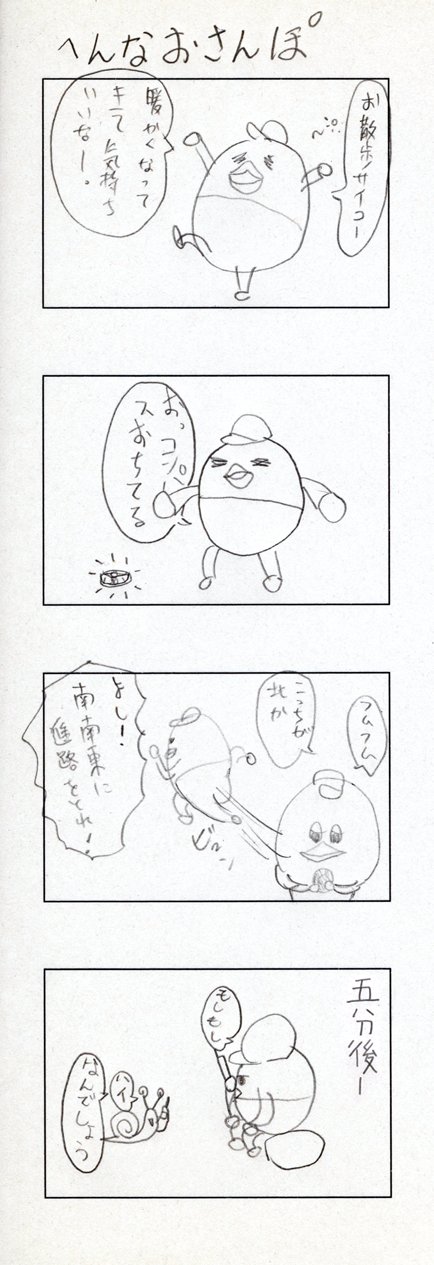 へんなおさんぽ
お散歩サイコー
暖かくなって
キテ気持ち
いいなー。
お。コンパ
スおちてる
フムフム
こっちが
北か
よし!
南南東に
進路をとれ!
ビュン
五分後ー
もしもし
ハイ
なんでしょう